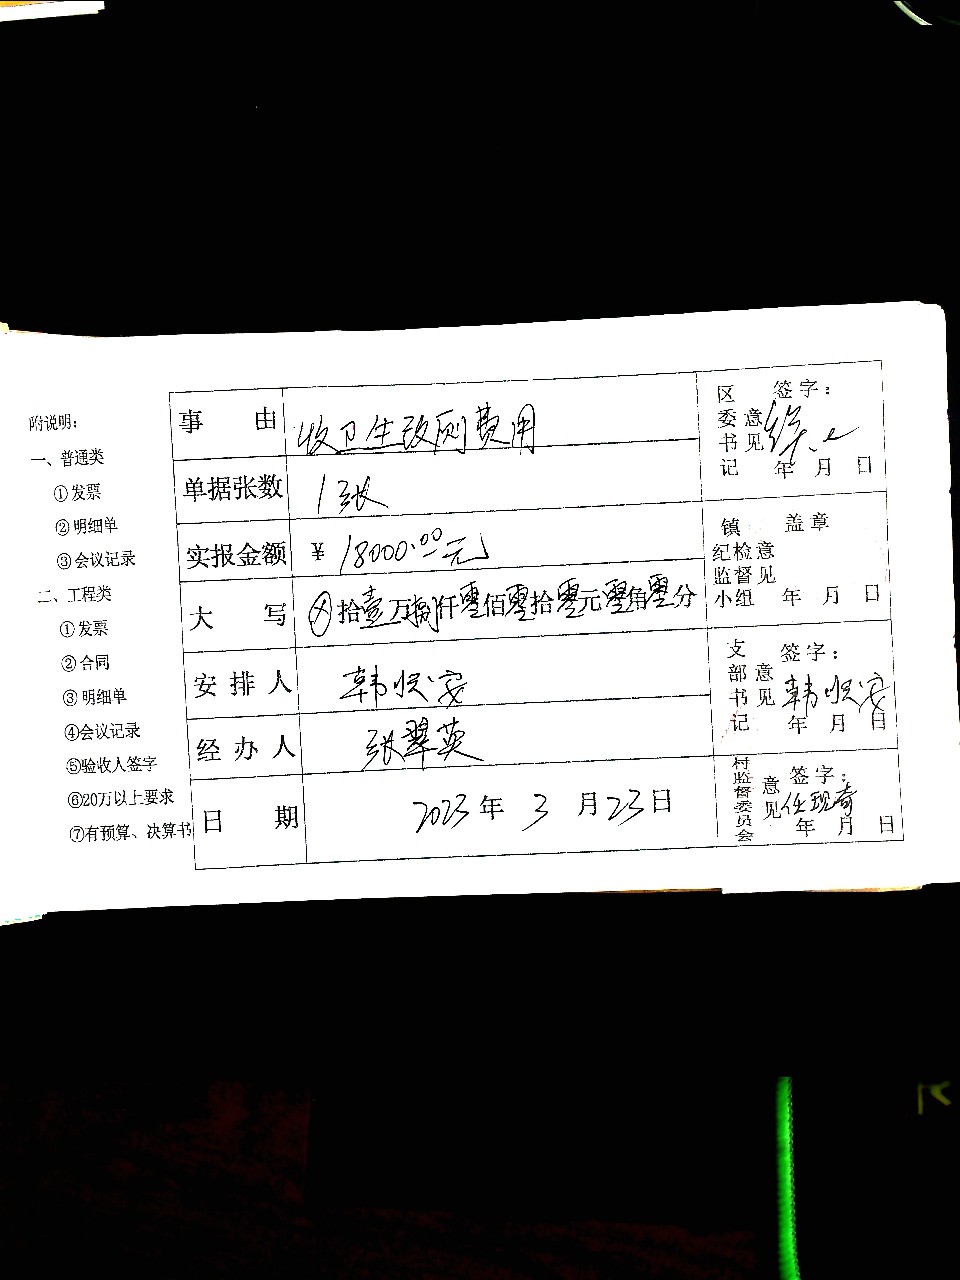 附说明:
一、普通类
①发票
②明细单
③会议记录
二、工程类
①发票
②合同
③明细单
④会议记录
⑤验收人签字
⑥20万以上要求
⑦有预算、决算书
事 由 收卫生改厕费用
单据张数 1张
实报金额 ¥ 18000.00元
大 写 ⊗拾壹万捌仟零佰零拾零元零角零分
安排人 韩
经办人 张翠英
日 期 2023年 3 月23日
区委书记意见 签字:
年 月 日
镇纪检监督小组意见 盖章
年 月 日
支部书记意见 签字: 韩
年 月 日
村监督委员会意见 签字: 任现奇
年 月 日